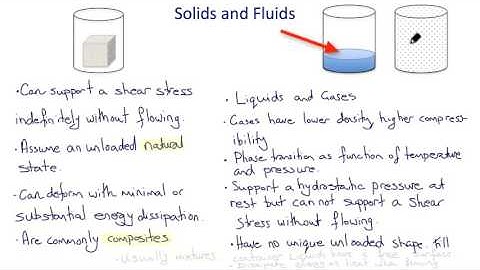 Solids and Fluids
• Can support a shear stress
indefinitely without flowing.
• Assume an unloaded natural
state.
• Can deform with minimal or
substantial energy dissipation.
• Are commonly composites
- Usually mixtures
• Liquids and Gases
• Gases have lower density, higher compress-
ibility
• Phase transition as function of temperature
and pressure.
• Support a hydrostatic pressure at
rest but can not support a shear
stress without flowing.
• Have no unique unloaded shape. Fill
container. Liquids have a free surface